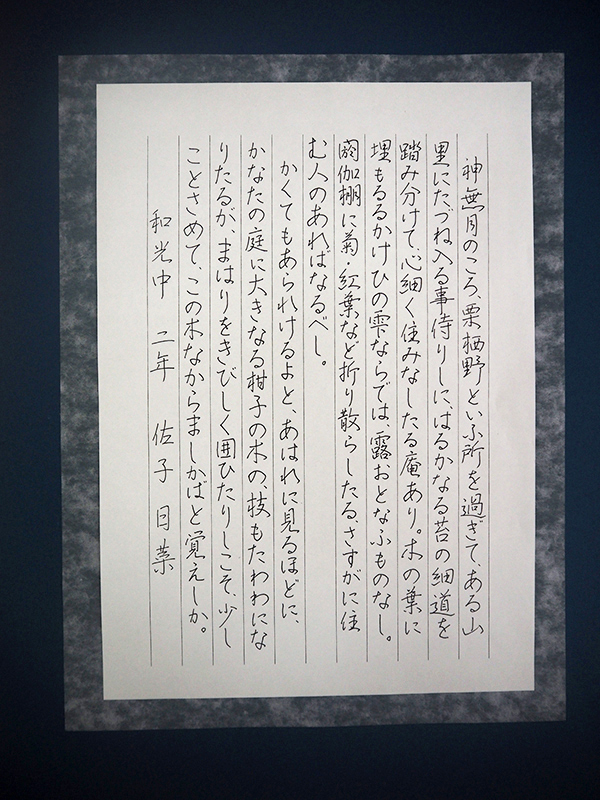 神無月のころ、栗栖野といふ所を過ぎて、ある山
里にたづね入る事侍りしに、はるかなる苔の細道を
踏み分けて、心細く住みなしたる庵あり。木の葉に
埋もるるかけひの雫ならでは、露おとなふものなし。
閼伽棚に菊・紅葉など折り散らしたる、さすがに住
む人のあればなるべし。
かくてもあられけるよと、あはれに見るほどに、
かなたの庭に大きなる柑子の木の、枝もたわわにな
りたるが、まはりをきびしく囲ひたりしこそ、少し
ことさめて、この木なからましかばと覚えしか。
和光中 二年 佐子 日菜